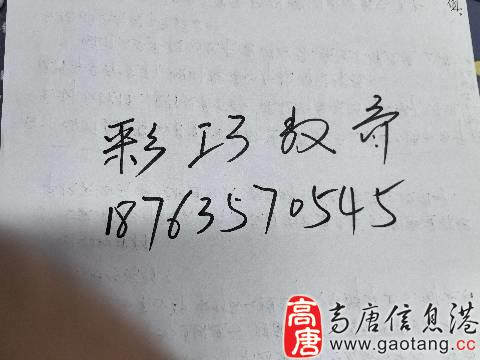 彩巧教育
18763570545
高唐
高唐信息港
www.gaotang.cc